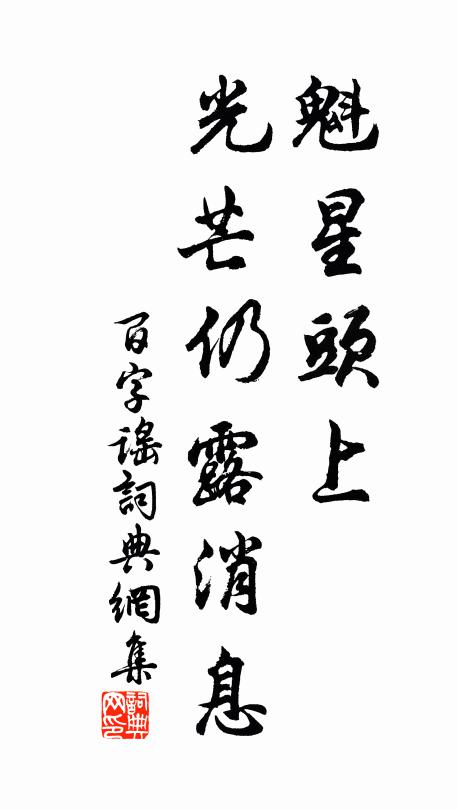 魁星頭上
光芒仍露消息
百字謠詞典網集
詞典
网印